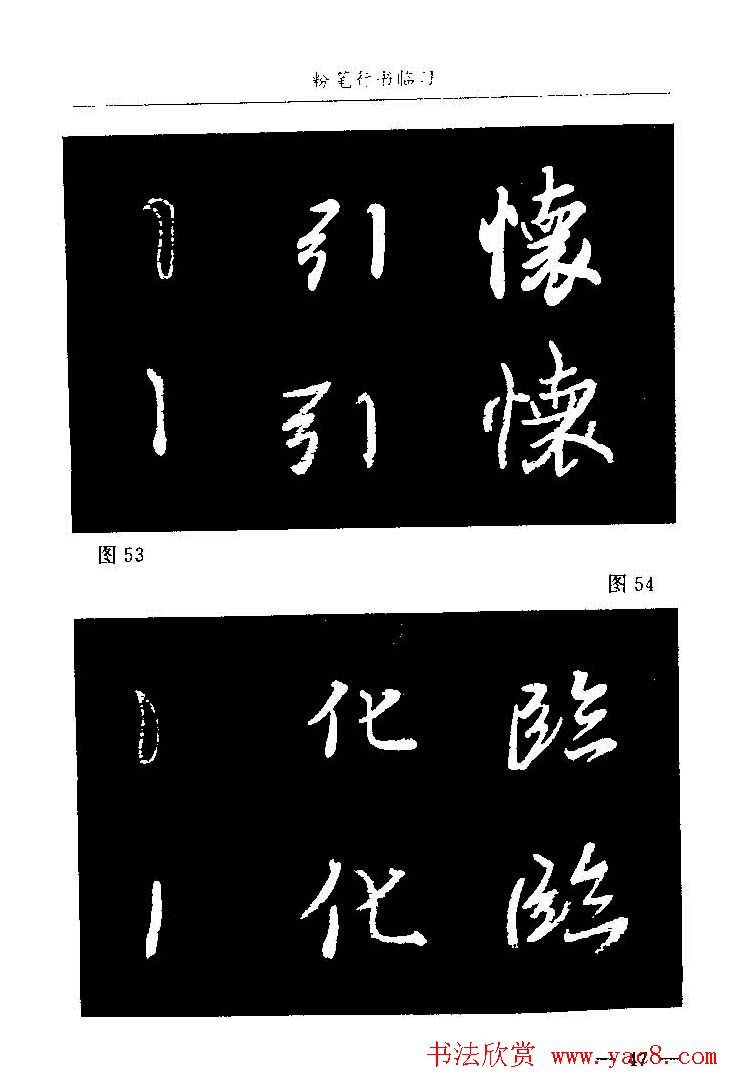 粉笔行书临习
引 懷
引 懷
图 53
图 54
化 臨
化 臨
书法欣赏 www.yac8.com
— 47 —